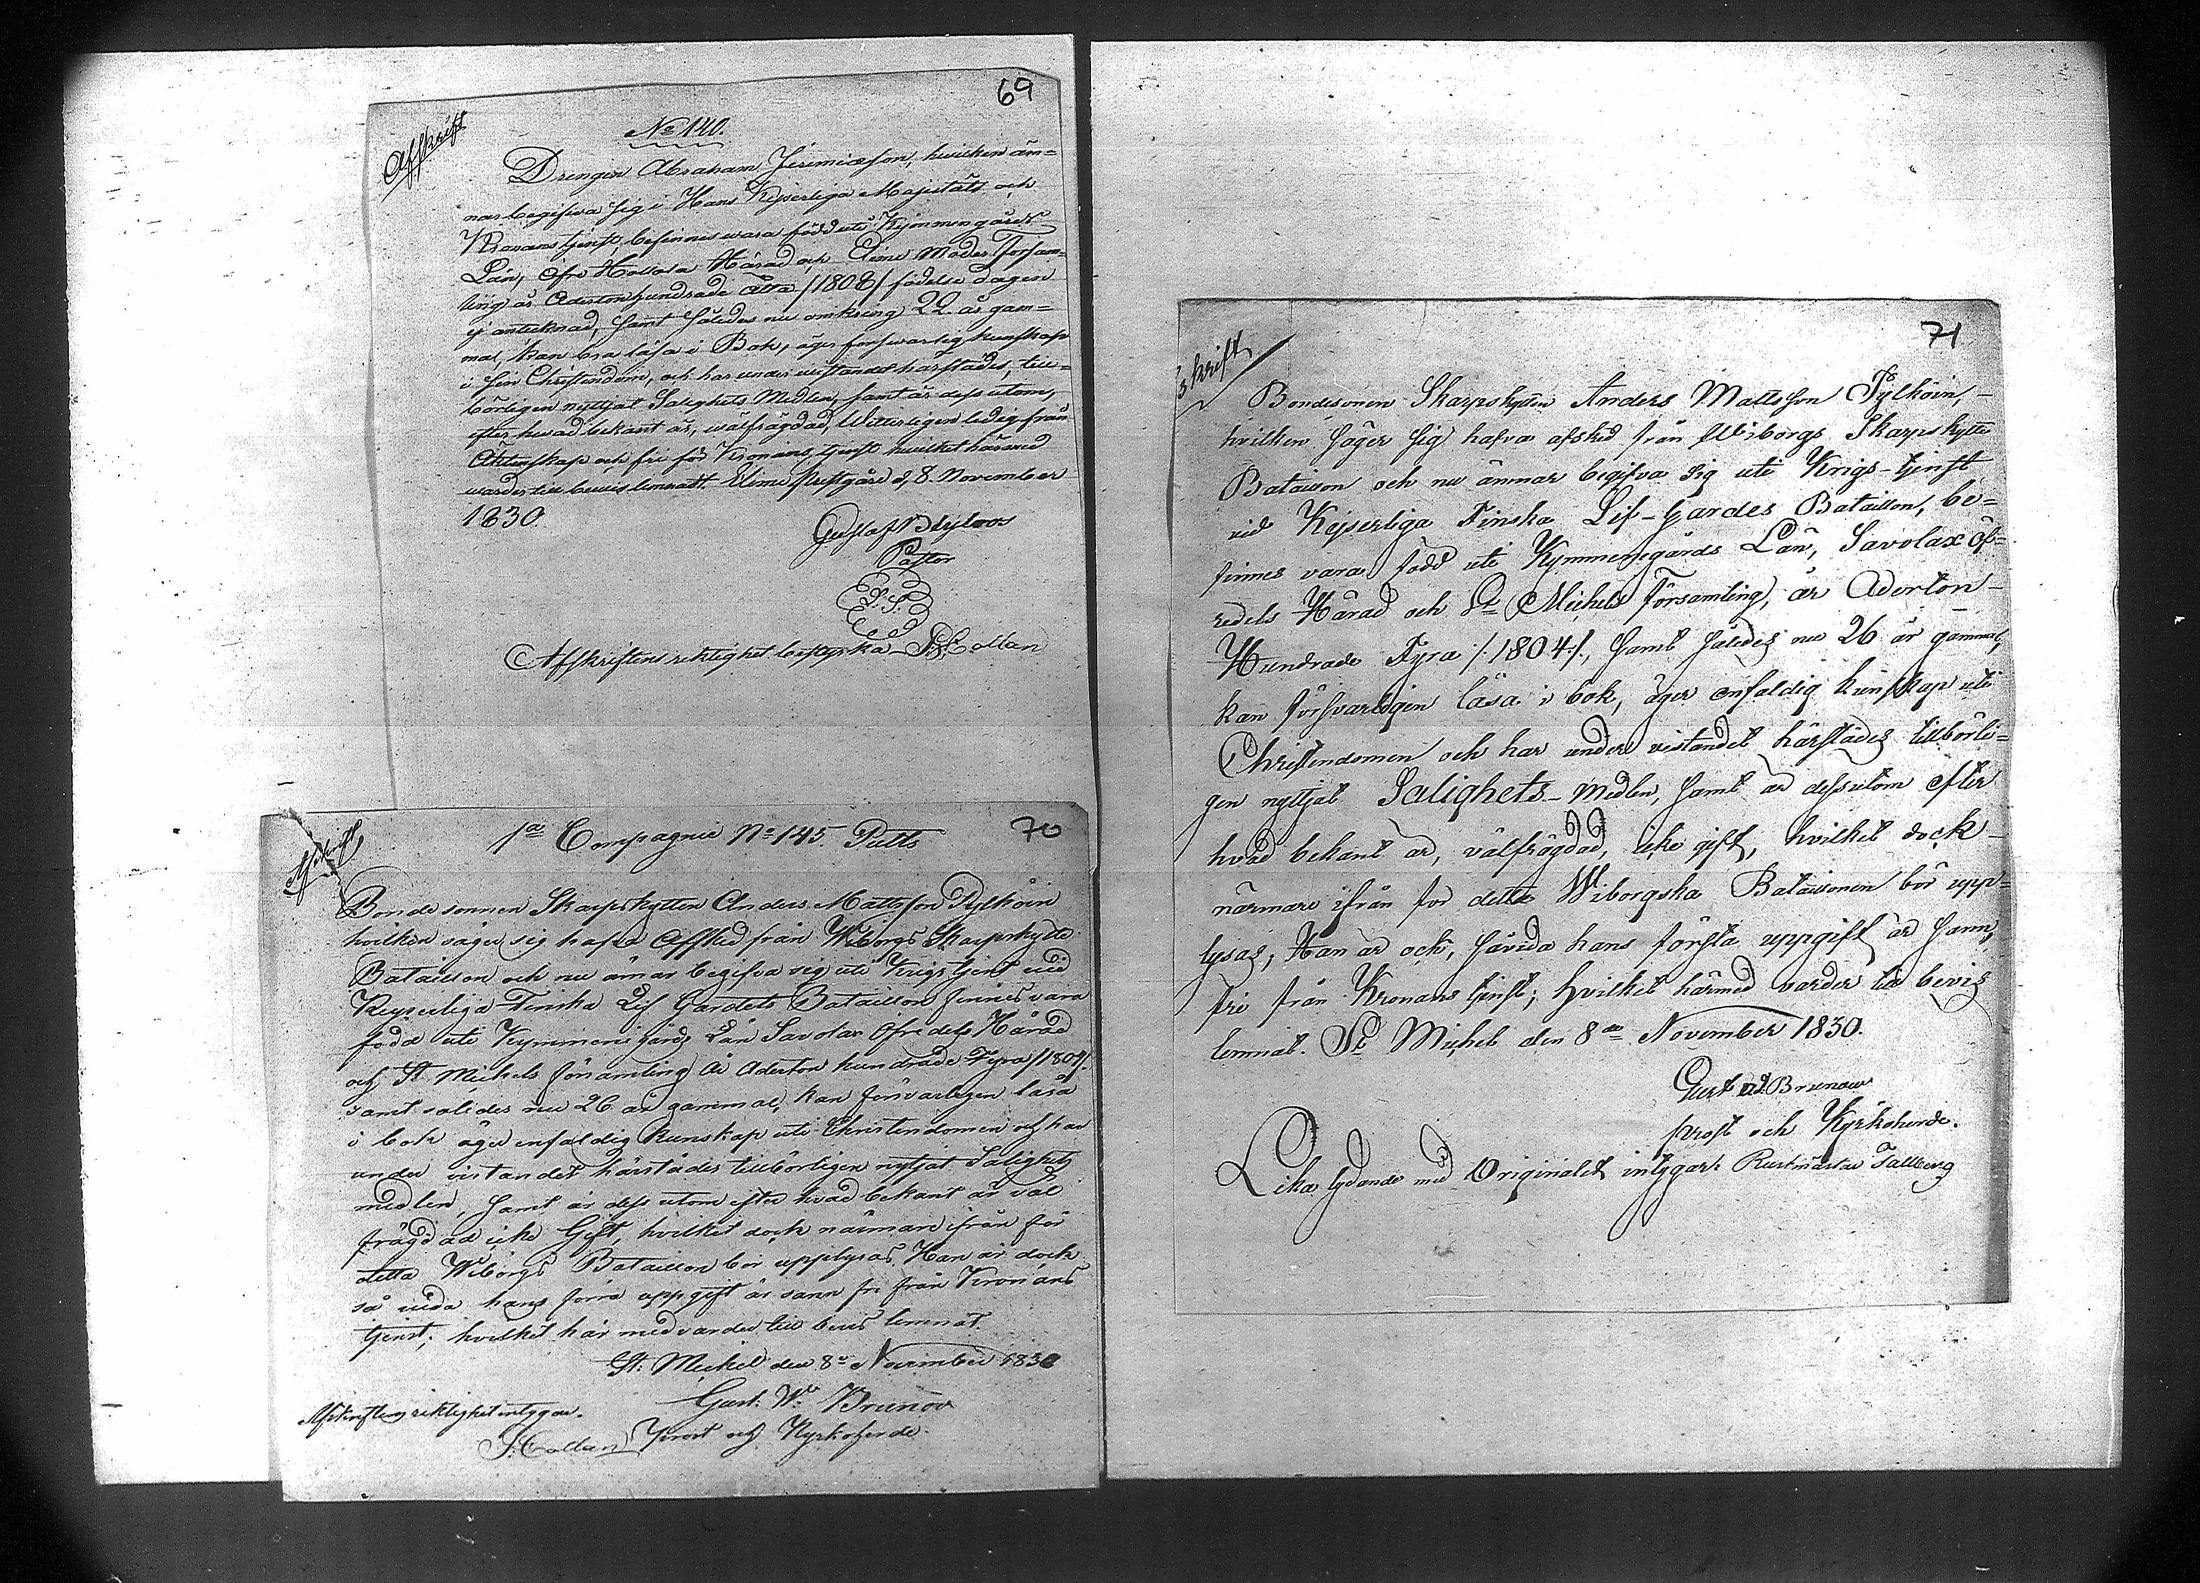 69
Afskrift
No 140.
Drengen Abraham Jeremiæson, hwilken äm=
nar begifwa sig i Hans Kejserliga Majestäts och
Kronans tjenst, befinnes wara född uti Kymmenegårds
Län, Öfre Hollola Härad och Elime Moder Försam=
ling år Adertonhundrade åtta /1808/ födelse dagen
ej antecknad, samt således nu omkring 22 år gam=
mal, kan bra läsa i Bok, äger förswarlig kunskap
i sin Christendom, och har under wistandet härstädes, till=
börligen nyttjat Salighets Medlen, samt är dess utom,
efter hwad bekant är, wälfrägdad, Witterligen ledig från
Äktenskap och fri för Kronans tjenst hwilket härmed
warder till bewis lemnadt. Elime Prestgård d. 8. November
1830.
Gustaf
Pastor
L.S.
Afskriftens riktighet bestyrka Collan
70
Afskrift
1a Compagnie No 145. Patts
Bondesonnen Skarpskytten Anders Mattsson Pylköin
hvilken säger sig hafva Affsked från Wiborgs Skarpskytte
Bataillon och nu ämnar begifva sig uti Krigstjenst vid
Keyserliga Finska Lif Gardets Bataillon finnes vara
född uti Kymmenegårds Län Savolax Öfredels Härad
och St Michels församling År Aderton hundrade Fyra /1804/.
samt således nu 26 år gammal, kan försvarligen läsa
i bok äger enfaldig Kunskap uti Christendomen och har
under vistandet härstädes tillbörligen nytjat Salighets
medlen, samt är dess utom efter hvad bekant är väl
frägdad icke Gift, hvilket dock närmare ifrån för
detta Wiborgs Bataillon bör upplysas. Han är dock
så vida hans förra uppgift är sann fri från Kronans
tjenst; hvilket här med varder till bevis lemnat.
St. Michel den 8de November 1830
Gust. Wm Brunov
Prost och Kyrkoherde.
Afskriftens riktighet intygar.
Collan
71
skrift
Bondesonen Skarpskytten Anders Mattsson Pylköin, -
hvilken säger sig hafva afsked från Wiborgs Skarpskytte
Bataillon och nu ämnar begifva sig uti Krigs-tjenst
vid Kejserliga Finska Lif-Gardes Bataillon, be=
finnes vara född uti Kymmenegårds Län, Savolax Öf=
redels Härad och St Michels församling, år Aderton -
Hundrade Fyra /:1804:/, samt således nu 26 år gammal,
kan försvarligen läsa i bok, äger enfaldig kunskap uti
Christendomen och har under vistandet härstädes tillbörli=
gen nyttjat Salighets-medlen, samt är dessutom efter
hvad bekant är, välfrägdad, icke gift, hvilket dock -
närmare ifrån för detta Wiborgska Bataillonen bör upp=
lysas, Han är ock, såvida hans första uppgift är sann,
fri från Kronans tjenst; hvilket härmed varder till bevis
lemnat. St Michel den 8de November 1830.
Gust Brunow
prost och Kyrkoherde.
Lika lydande med Originalet intygar: Rustmästar Tallberg